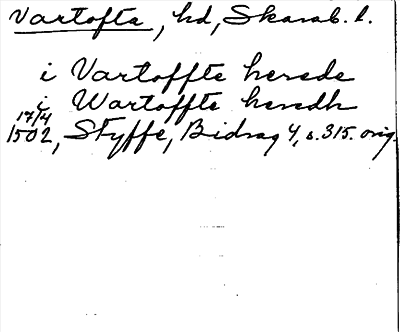 Vartofta, hd, Skarab. l.
i Vartoffte herede
i Wartoffte heredh
17/4
1502, Styffe, Bidrag 4, s. 315. orig.